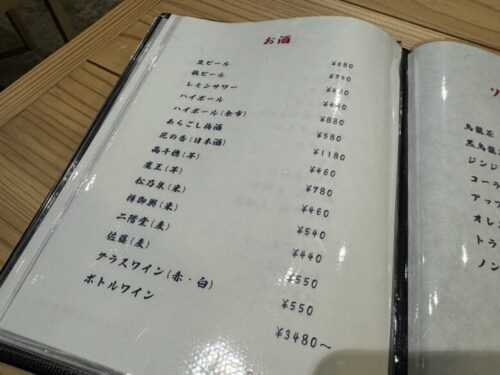 お酒
生ビール ¥680
瓶ビール ¥740
レモンサワー
ハイボール
ハイボール(余市) ¥880
あらごし梅酒 ¥580
花の香(日本酒) ¥1180
高千穂(芋) ¥460
魔王(芋) ¥780
松乃泉(米) ¥460
(米) ¥540
二階堂(麦) ¥440
佐藤(麦) ¥550
グラスワイン(赤・白) ¥550
ボトルワイン ¥3480～
ソ
烏龍茶
黒烏龍
ジンジ
コー
アップ
オレ
トラ
ノン